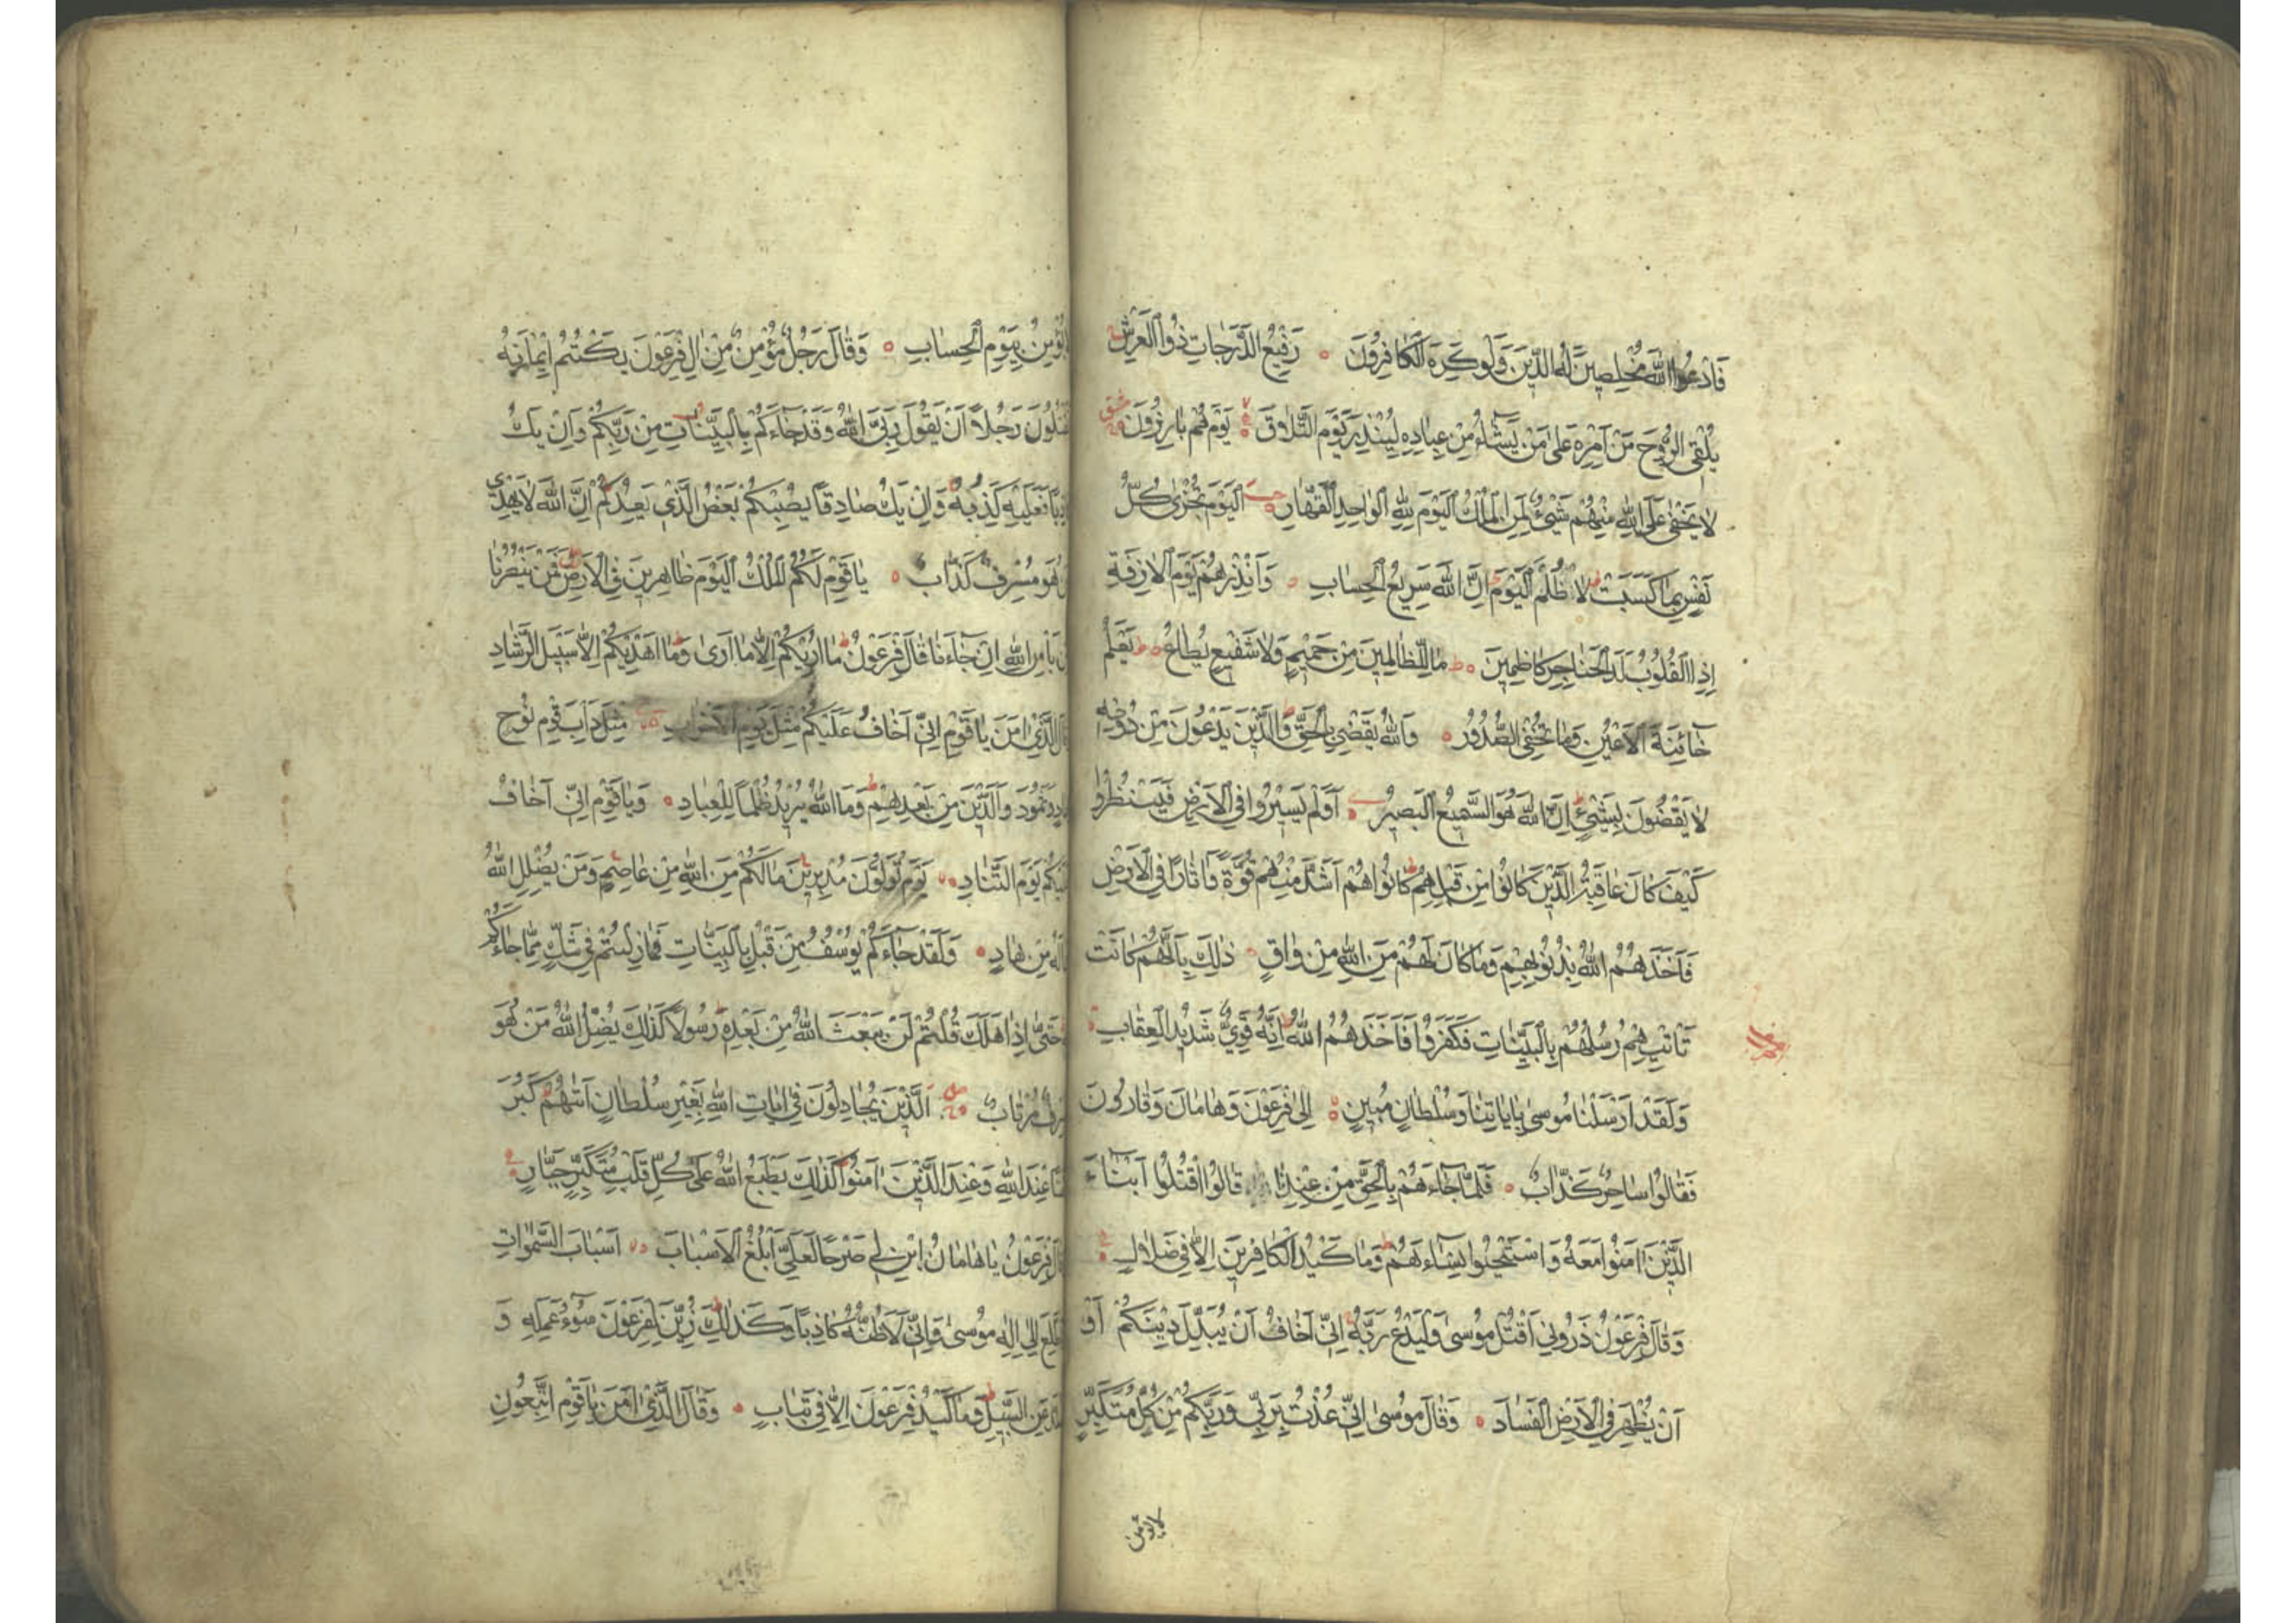 فَادْعُوا اللّٰهَ مُخْلِصِينَ لَهُ الدِّينَ وَلَوْ كَرِهَ الْكَافِرُونَ رَفِيعُ الدَّرَجَاتِ ذُوا الْعَرْشِ
يُلْقِي الرُّوحَ مِنْ اَمْرِهِ عَلَى مَنْ يَشَاءُ مِنْ عِبَادِهِ لِيُنْذِرَ يَوْمَ التَّلَاقِ يَوْمَ هُمْ بَارِزُونَ
لَا يَخْفَى عَلَى اللّٰهِ مِنْهُمْ شَيْءٌ لِمَنِ الْمُلْكُ الْيَوْمَ لِلّٰهِ الْوَاحِدِ الْقَهَّارِ اَلْيَوْمَ تُجْزَى كُلُّ
نَفْسٍ بِمَا كَسَبَتْ لَا ظُلْمَ الْيَوْمَ اِنَّ اللّٰهَ سَرِيعُ الْحِسَابِ وَاَنْذِرْهُمْ يَوْمَ الْاٰزِفَةِ
اِذِ الْقُلُوبُ لَدَى الْحَنَاجِرِ كَاظِمِينَ مَا لِلظَّالِمِينَ مِنْ حَمِيمٍ وَلَا شَفِيعٍ يُطَاعُ يَعْلَمُ
خَائِنَةَ الْاَعْيُنِ وَمَا تُخْفِي الصُّدُورُ وَاللّٰهُ يَقْضِي بِالْحَقِّ وَالَّذِينَ يَدْعُونَ مِنْ دُونِهِ
لَا يَقْضُونَ بِشَيْءٍ اِنَّ اللّٰهَ هُوَ السَّمِيعُ الْبَصِيرُ اَوَلَمْ يَسِيرُوا فِي الْاَرْضِ فَيَنْظُرُوا
كَيْفَ كَانَ عَاقِبَةُ الَّذِينَ كَانُوا مِنْ قَبْلِهِمْ كَانُوا هُمْ اَشَدَّ مِنْهُمْ قُوَّةً وَاٰثَارًا فِي الْاَرْضِ
فَاَخَذَهُمُ اللّٰهُ بِذُنُوبِهِمْ وَمَا كَانَ لَهُمْ مِنَ اللّٰهِ مِنْ وَاقٍ ذٰلِكَ بِاَنَّهُمْ كَانَتْ
تَاْتِيهِمْ رُسُلُهُمْ بِالْبَيِّنَاتِ فَكَفَرُوا فَاَخَذَهُمُ اللّٰهُ اِنَّهُ قَوِيٌّ شَدِيدُ الْعِقَابِ
وَلَقَدْ اَرْسَلْنَا مُوسَى بِاٰيَاتِنَا وَسُلْطَانٍ مُبِينٍ اِلَى فِرْعَوْنَ وَهَامَانَ وَقَارُونَ
فَقَالُوا سَاحِرٌ كَذَّابٌ فَلَمَّا جَاءَهُمْ بِالْحَقِّ مِنْ عِنْدِنَا قَالُوا اقْتُلُوا اَبْنَاءَ
الَّذِينَ اٰمَنُوا مَعَهُ وَاسْتَحْيُوا نِسَاءَهُمْ وَمَا كَيْدُ الْكَافِرِينَ اِلَّا فِي ضَلَالٍ
وَقَالَ فِرْعَوْنُ ذَرُونِي اَقْتُلْ مُوسَى وَلْيَدْعُ رَبَّهُ اِنِّي اَخَافُ اَنْ يُبَدِّلَ دِينَكُمْ اَوْ
اَنْ يُظْهِرَ فِي الْاَرْضِ الْفَسَادَ وَقَالَ مُوسَى اِنِّي عُذْتُ بِرَبِّي وَرَبِّكُمْ مِنْ كُلِّ مُتَكَبِّرٍ
لا يؤمن
يُؤْمِنُ بِيَوْمِ الْحِسَابِ وَقَالَ رَجُلٌ مُؤْمِنٌ مِنْ اٰلِ فِرْعَوْنَ يَكْتُمُ اِيمَانَهُ
رَجُلًا اَنْ يَقُولَ رَبِّيَ اللّٰهُ وَقَدْ جَاءَكُمْ بِالْبَيِّنَاتِ مِنْ رَبِّكُمْ وَاِنْ يَكُ
فَعَلَيْهِ كَذِبُهُ وَاِنْ يَكُ صَادِقًا يُصِبْكُمْ بَعْضُ الَّذِي يَعِدُكُمْ اِنَّ اللّٰهَ لَا يَهْدِي
هُوَ مُسْرِفٌ كَذَّابٌ يَا قَوْمِ لَكُمُ الْمُلْكُ الْيَوْمَ ظَاهِرِينَ فِي الْاَرْضِ فَمَنْ يَنْصُرُنَا
بَاْسِ اللّٰهِ اِنْ جَاءَنَا قَالَ فِرْعَوْنُ مَا اُرِيكُمْ اِلَّا مَا اَرَى وَمَا اَهْدِيكُمْ اِلَّا سَبِيلَ الرَّشَادِ
الَّذِي اٰمَنَ يَا قَوْمِ اِنِّي اَخَافُ عَلَيْكُمْ مِثْلَ يَوْمِ الْاَحْزَابِ مِثْلَ دَاْبِ قَوْمِ نُوحٍ
وَثَمُودَ وَالَّذِينَ مِنْ بَعْدِهِمْ وَمَا اللّٰهُ يُرِيدُ ظُلْمًا لِلْعِبَادِ وَيَا قَوْمِ اِنِّي اَخَافُ
يَوْمَ التَّنَادِ يَوْمَ تُوَلُّونَ مُدْبِرِينَ مَا لَكُمْ مِنَ اللّٰهِ مِنْ عَاصِمٍ وَمَنْ يُضْلِلِ اللّٰهُ
مِنْ هَادٍ وَلَقَدْ جَاءَكُمْ يُوسُفُ مِنْ قَبْلُ بِالْبَيِّنَاتِ فَمَا زِلْتُمْ فِي شَكٍّ مِمَّا جَاءَكُمْ
حَتَّى اِذَا هَلَكَ قُلْتُمْ لَنْ يَبْعَثَ اللّٰهُ مِنْ بَعْدِهِ رَسُولًا كَذٰلِكَ يُضِلُّ اللّٰهُ مَنْ هُوَ
مُرْتَابٌ اَلَّذِينَ يُجَادِلُونَ فِي اٰيَاتِ اللّٰهِ بِغَيْرِ سُلْطَانٍ اَتٰيهُمْ كَبُرَ
عِنْدَ اللّٰهِ وَعِنْدَ الَّذِينَ اٰمَنُوا كَذٰلِكَ يَطْبَعُ اللّٰهُ عَلَى كُلِّ قَلْبِ مُتَكَبِّرٍ جَبَّارٍ
فِرْعَوْنُ يَا هَامَانُ ابْنِ لِي صَرْحًا لَعَلِّي اَبْلُغُ الْاَسْبَابَ اَسْبَابَ السَّمٰوَاتِ
اِلَى اِلٰهِ مُوسَى وَاِنِّي لَاَظُنُّهُ كَاذِبًا وَكَذٰلِكَ زُيِّنَ لِفِرْعَوْنَ سُوءُ عَمَلِهِ وَ
عَنِ السَّبِيلِ وَمَا كَيْدُ فِرْعَوْنَ اِلَّا فِي تَبَابٍ وَقَالَ الَّذِي اٰمَنَ يَا قَوْمِ اتَّبِعُونِ